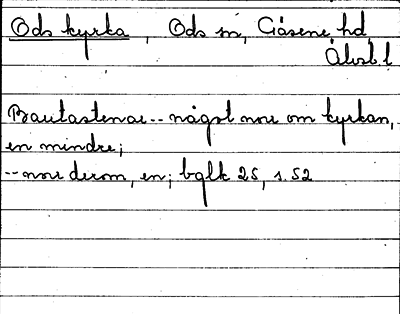 Ods kyrka, Ods sn, Gäsene hd,
Älvsb. l
Bautastenar -- något norr om kyrkan,
en mindre;
-- norr derom, en; bglk 25, s. 52